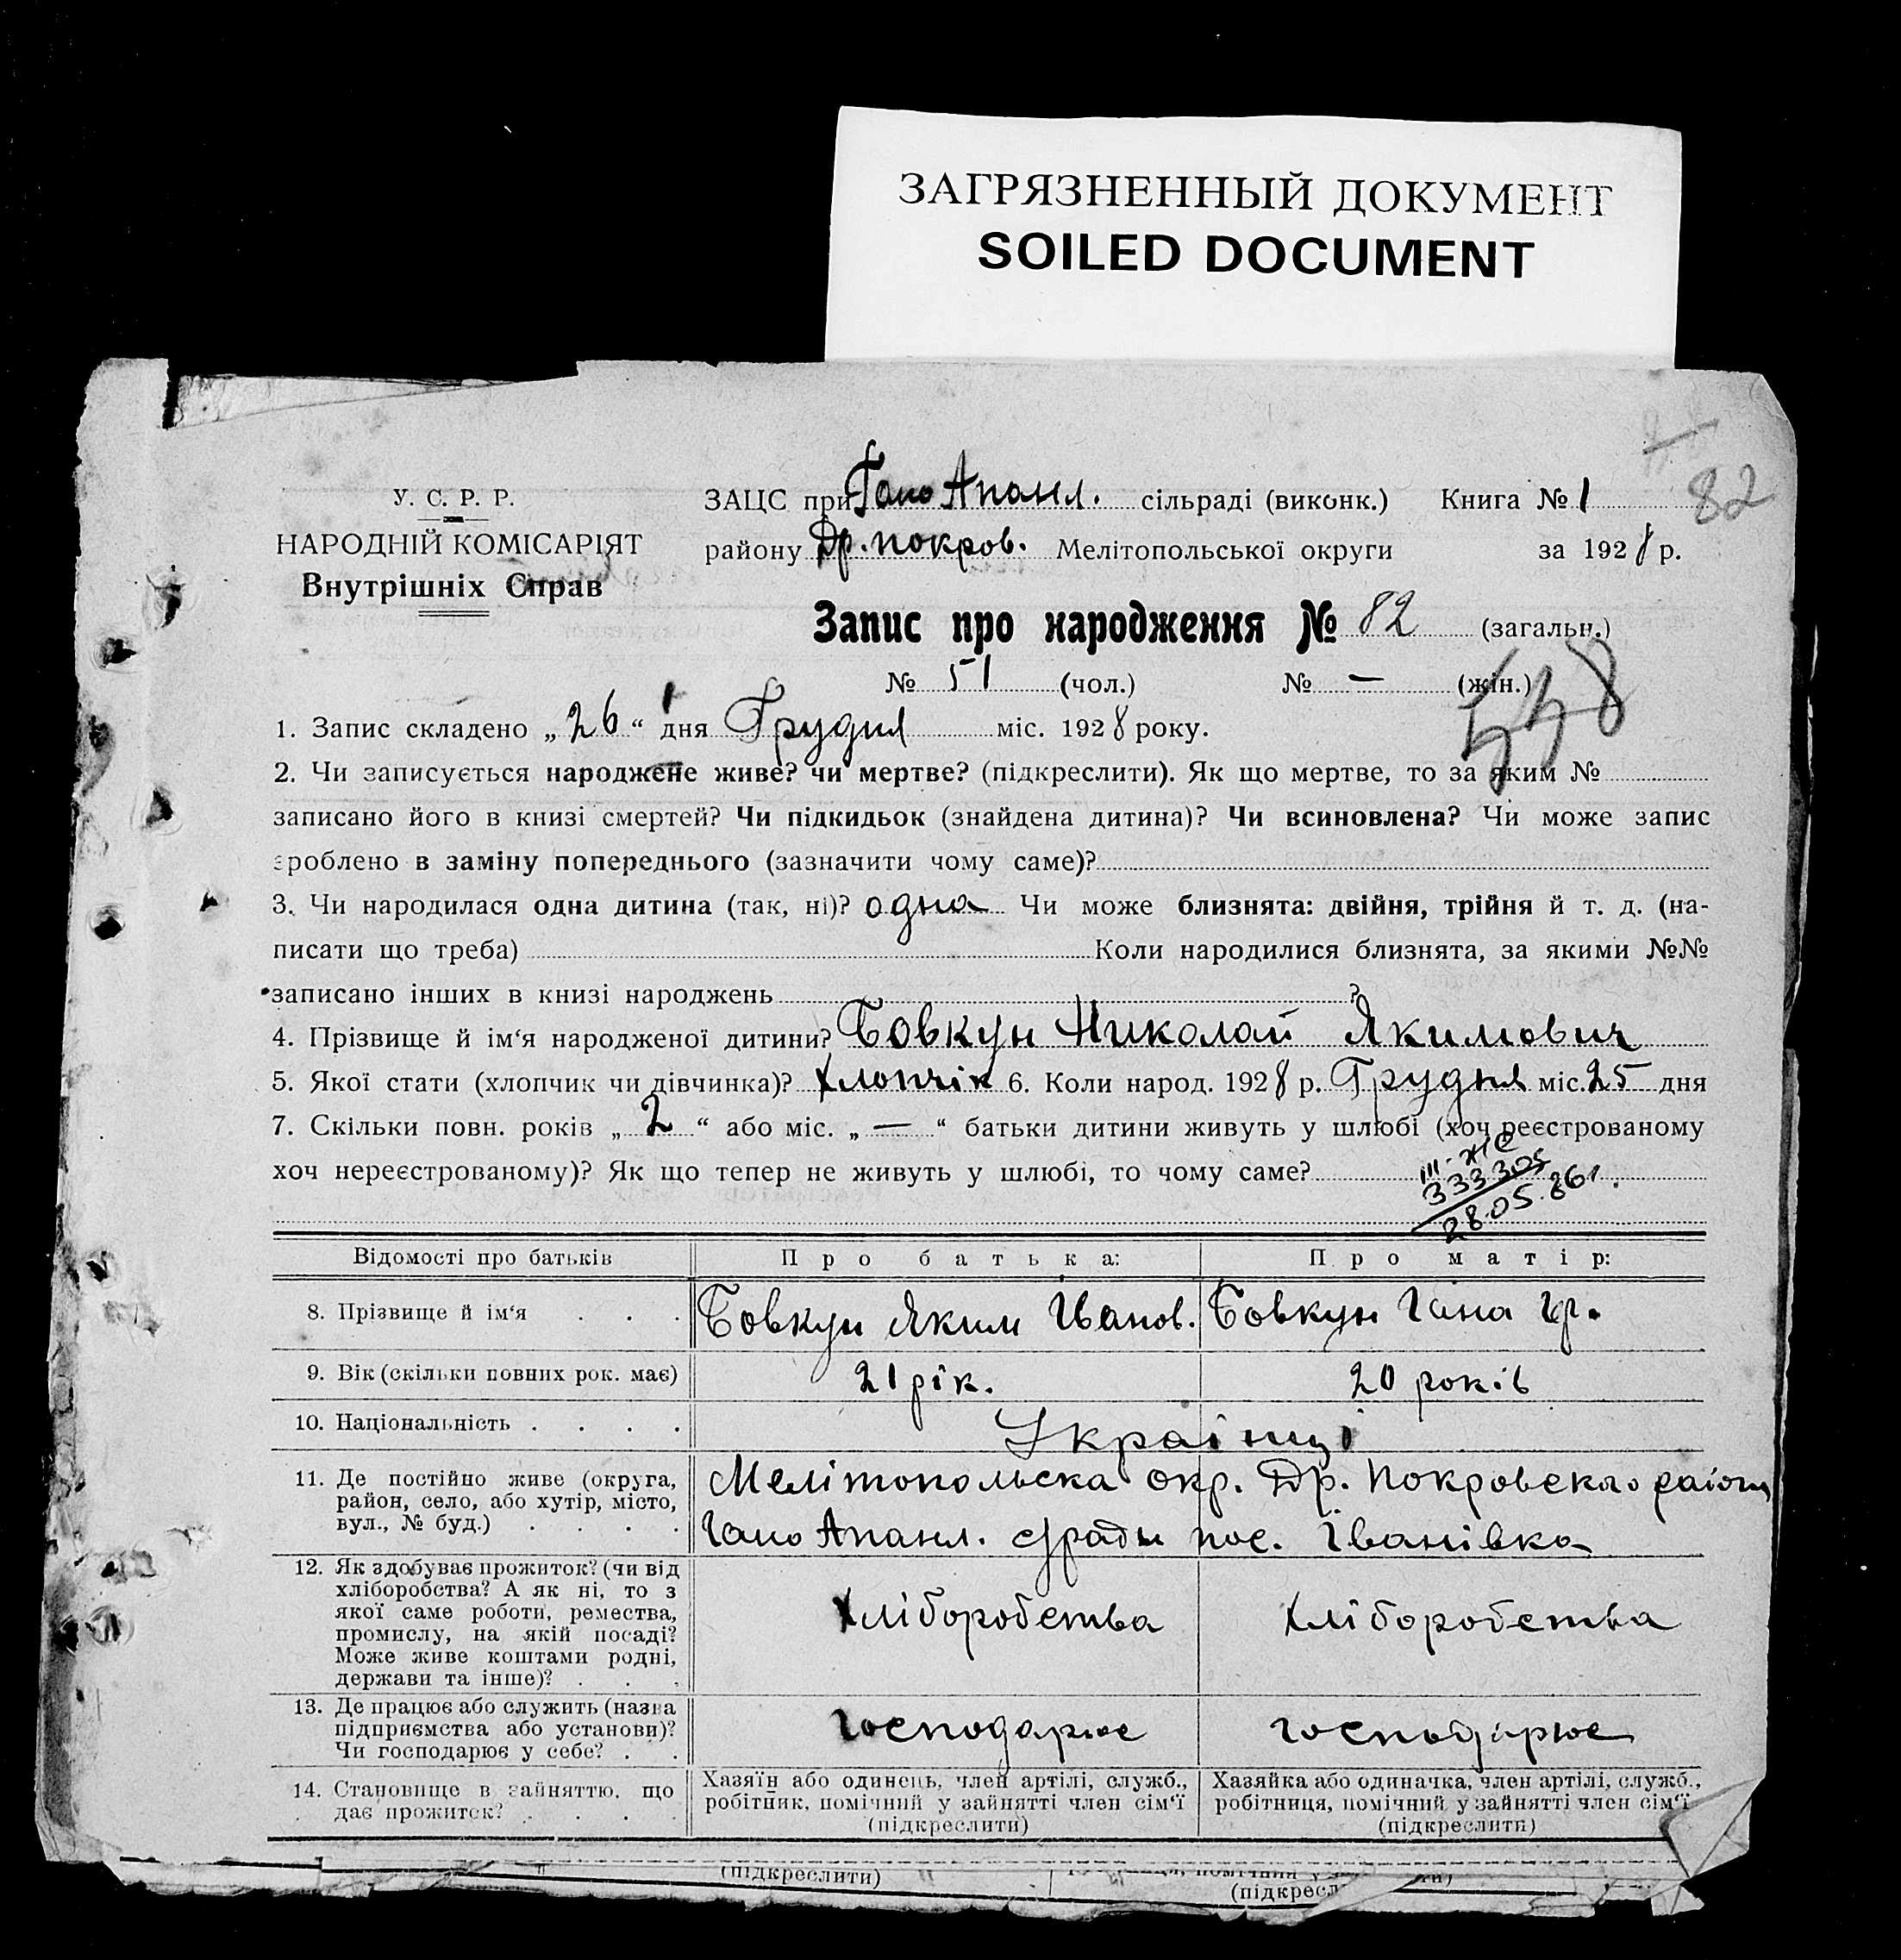 ЗАГРЯЗНЕННЫЙ ДОКУМЕНТ
SOILED DOCUMENT
82
У. С. Р. Р.
НАРОДНІЙ КОМІСАРІЯТ
Внутрішніх Справ
ЗАЦС при Гано Апанл. сільраді (виконк.) Книга № 1
району Др. покров. Мелітопольської округи за 1928 р.
Запис про народження № 82 (загальн.)
№ 51 (чол.) № — (жін.)
1. Запис складено „26“ дня Грудня міс. 1928 року.
2. Чи записується народжене живе? чи мертве? (підкреслити). Як що мертве, то за яким №
записано його в книзі смертей? Чи підкидьок (знайдена дитина)? Чи всиновлена? Чи може запис
зроблено в заміну попереднього (зазначити чому саме)?
3. Чи народилася одна дитина (так, ні)? одна Чи може близнята: двійня, трійня й т. д. (на-
писати що треба) Коли народилися близнята, за якими №№
записано інших в книзі народжень ?
4. Прізвище й ім‘я народженої дитини? Бовкун Николай Якимович
5. Якої стати (хлопчик чи дівчинка)? Хлопчік 6. Коли народ. 1928 р. Грудня міс. 25 дня
7. Скільки повн. років „2“ або міс. „—“ батьки дитини живуть у шлюбі (хоч реєстрованому
хоч нереєстрованому)? Як що тепер не живуть у шлюбі, то чому саме?
III-ЖС
333305
28.05.861.
Відомості про батьків Про батька: Про матір:
8. Прізвище й ім‘я . . . Бовкун Яким Іванов. Бовкун Гана Гр.
9. Вік (скільки повних рок. має) 21 рік. 20 років
10. Національність . . . . Украінці
11. Де постійно живе (округа, район, село, або хутір, місто, вул., № буд.) . . . .
Мелітопольска окр. Др. Покровскаго раіону
Гано Апанл. с/ради пос. Іванівка
12. Як здобуває прожиток? (чи від
хліборобства? А як ні, то з
якої саме роботи, ремества,
промислу, на якій посаді?
Може живе коштами родні,
держави та інше)? . . .
Хліборобства Хліборобства
13. Де працює або служить (назва
підприємства або установи)?
Чи господарює у себе? . .
Господарює господарює
14. Становище в зайняттю, що
дає прожиток? . . . .
Хазяїн або одинець, член артілі, служб.,
робітник, помічний у зайнятті член сім‘ї
(підкреслити)
Хазяйка або одиначка, член артілі, служб.,
робітниця, помічний у зайнятті член сім‘ї
(підкреслити)
(підкреслити)